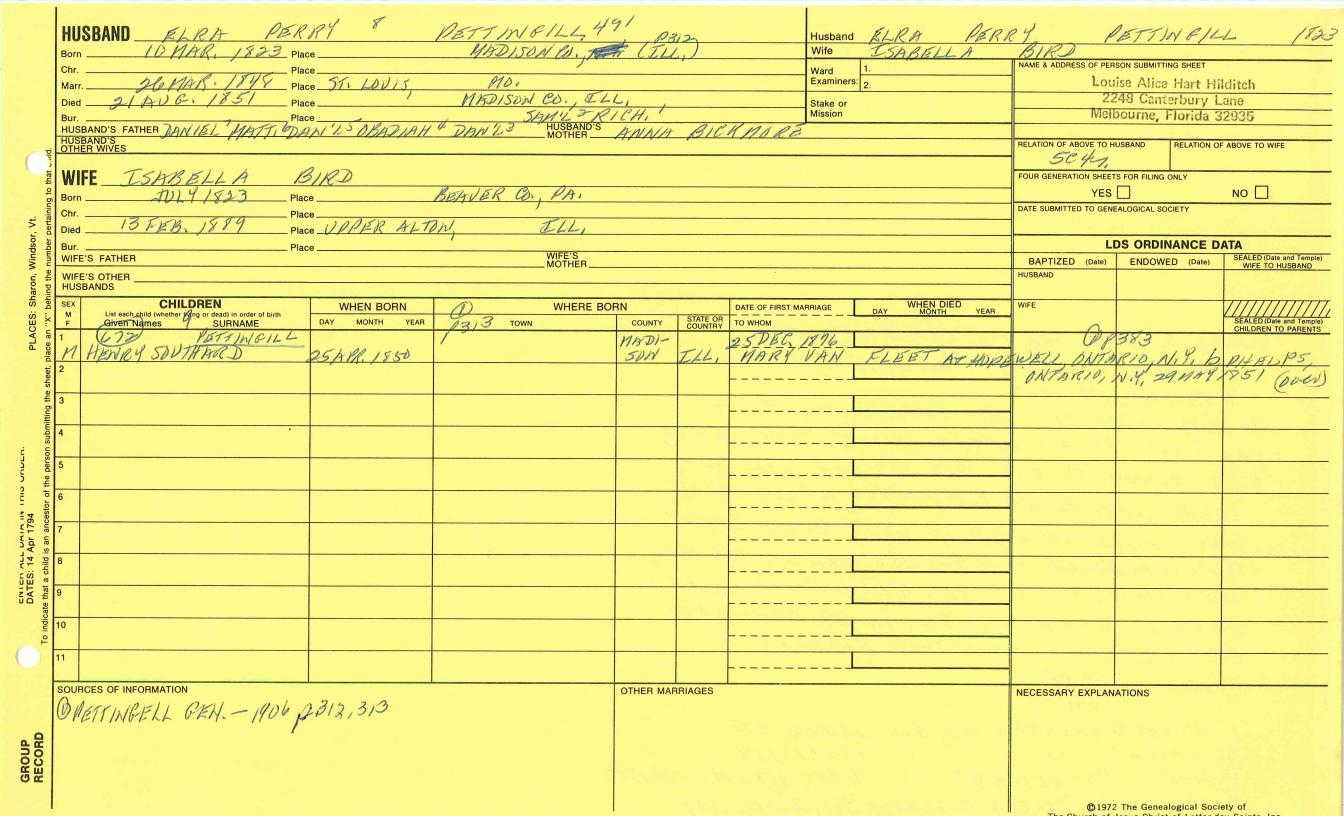 HUSBAND ELRA PERRY 8 PETTINGILL, 491 P312
Born 10 MAR. 1823 Place MADISON CO., (ILL.)
Chr. Place
Marr. 26 MAR. 1848 Place ST. LOUIS, MO.
Died 21 AUG. 1851 Place MADISON CO., ILL.
Bur. Place SAM'L 2 RICH. 1
HUSBAND'S FATHER DANIEL 7 MATT. 6 DAN'L 5 OBADIAH 4 DAN'L 3 HUSBAND'S MOTHER ANNA BICKMORE
HUSBAND'S OTHER WIVES
Husband ELRA PERRY PETTINGILL 1823
Wife ISABELLA BIRD
Ward Examiners: 1.
2.
Stake or Mission
NAME & ADDRESS OF PERSON SUBMITTING SHEET
Louise Alice Hart Hilditch
2248 Canterbury Lane
Melbourne, Florida 32935
RELATION OF ABOVE TO HUSBAND RELATION OF ABOVE TO WIFE
5C4r.
FOUR GENERATION SHEETS FOR FILING ONLY
YES NO
DATE SUBMITTED TO GENEALOGICAL SOCIETY
WIFE ISABELLA BIRD
Born JULY 1823 Place BEAVER CO., PA.
Chr. Place
Died 13 FEB. 1889 Place UPPER ALTON, ILL.
Bur. Place
WIFE'S FATHER WIFE'S MOTHER
WIFE'S OTHER HUSBANDS
LDS ORDINANCE DATA
BAPTIZED (Date) ENDOWED (Date) SEALED (Date and Temple) WIFE TO HUSBAND
HUSBAND
WIFE
SEALED (Date and Temple) CHILDREN TO PARENTS
SEX M F CHILDREN WHEN BORN WHERE BORN DATE OF FIRST MARRIAGE WHEN DIED
List each child (whether living or dead) in order of birth
Given Names 9 SURNAME DAY MONTH YEAR ① P313 TOWN COUNTY STATE OR COUNTRY TO WHOM DAY MONTH YEAR
1 (672) PETTINGILL MADI- 25 DEC. 1876 ① P383
M HENRY SOUTHARD 25 APR. 1850 SON ILL. MARY VAN FLEET AT HOPEWELL, ONTARIO, N.Y. b PHELPS,
2 ONTARIO, N.Y., 29 MAY 1851
3
4
5
6
7
8
9
10
11
SOURCES OF INFORMATION OTHER MARRIAGES NECESSARY EXPLANATIONS
① PETTINGELL GEN. — 1906 p312, 313
©1972 The Genealogical Society of
The Church of Jesus Christ of Latter-day Saints, Inc.
PLACES: Sharon, Windsor, Vt.
ENTER ALL DATA IN THIS ORDER:
DATES: 14 Apr 1794
To indicate that a child is an ancestor of the person submitting the sheet, place an "X" behind the number pertaining to that child.
GROUP RECORD